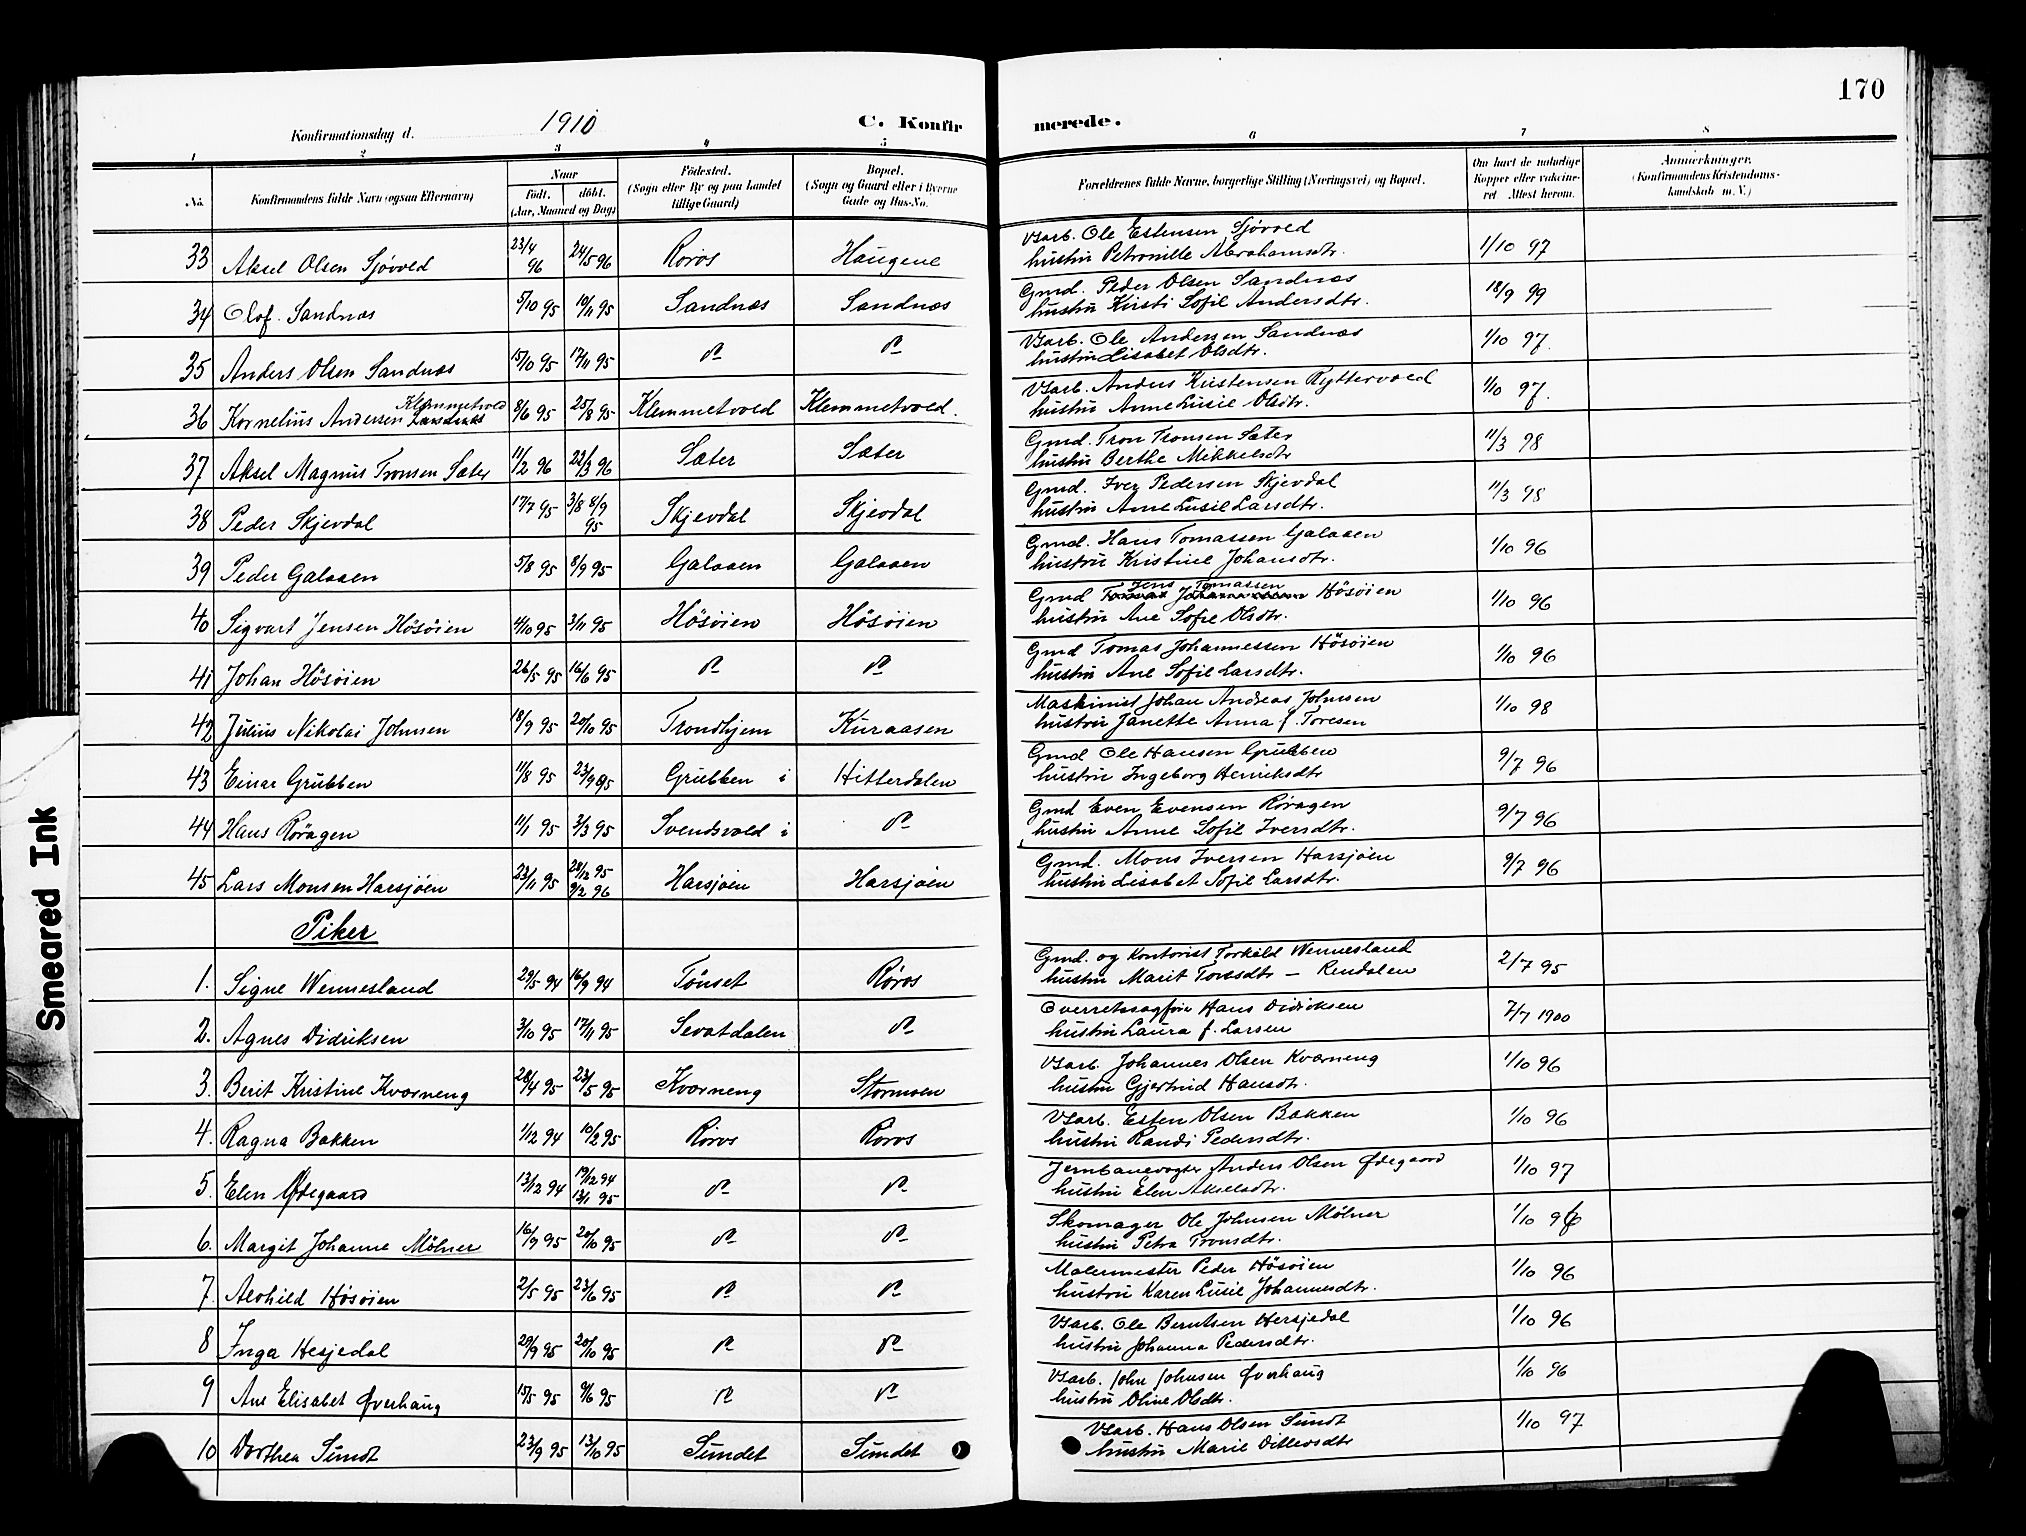 170
Konfirmationsdag d. 1910 C. Konfirmerede.
1 2 3 4 5 6 7 8
No. Konfirmandens fulde Navn (ogsaa Efternavn) Naar født. døbt. (Aar, Maaned og Dag) Fødested. (Sogn eller By og paa Landet tillige Gaard) Bopæl. (Sogn og Gaard eller i Byerne Gade og Hus-No. Forældrenes fulde Navne, borgerlige Stilling (Næringsvei) og Bopæl. Om havt de naturlige Kopper eller vaccineret Attest herom. Anmærkninger. (Konfirmandens Kristendomskundskab m. V.)
33 Aksel Olsen Sjøvold 23/4 96 24/5 96 Røros Haugene Vsarb. Ole Estensen Sjøvold 1/10 97
hustru Petronille Abrahamsdtr.
34 Olof Sandnæs 5/10 95 10/11 95 Sandnæs Sandnæs Gmd. Peder Olsen Sandnæs 18/9 99
hustru Kirsti Sofie Andersdtr.
35 Anders Olsen Sandnæs 15/10 95 17/11 95 do do Vsarb. Ole Anderssen Sandnæs 1/10 97.
hustru Lisabet Olsdtr.
36 Kornelius Andersen Klemmetvold 8/6 95 25/8 95 Klemmetvold Klemmetvold. Vsarb. Anders Kristensen Ryttervold 1/10 97.
hustru Anne Lusie Olsdtr.
37 Aksel Magnus Tronsen Sæter 11/2 96 22/3 96 Sæter Sæter Gmd. Tron Tronsen Sæter 11/3 98
hustru Berthe Mikkelsdtr
38 Peder Skjevdal 17/7 95 3/8 8/9 95 Skjevdal Skjevdal Gmd. Iver Pedersen Skjevdal 11/3 98
hustru Ane Lusie Larsdtr.
39 Peder Galaaen 5/8 95 8/9 95 Galaaen Galaaen Gmd. Hans Tomassen Galaaen 1/10 96
hustru Kristine Johansdtr.
40 Sigvart Jensen Høsøien 4/10 95 3/11 95 Høsøien Høsøien Gmd Jens Tomassen Høsøien 1/10 96
hustru Ane Sofie Olsdtr.
41 Johan Høsøien 26/5 95 16/6 95 do do Gmd Tomas Johannessen Høsøien 1/10 96
hustru Ane Sofie Larsdtr.
42 Julius Nikolai Johnsen 18/9 95 20/10 95 Trondhjem Kuraasen Maskinist Johan Andreas Johnsen 1/10 98
hustru Janette Anna f. Toresen
43 Einar Grubben 11/8 95 23/9 95 Grubben i Hitterdalen Gmd Ole Hansen Grubben 9/7 96
hustru Ingeborg Henriksdtr
44 Hans Røragen 11/1 95 3/3 95 Svendsvold i do Gmd Even Evensen Røragen 9/7 96
hustru Anne Sofie Iversdtr.
45 Lars Monsen Harsjøen 23/11 95 28/12 95 9/2 96 Harsjøen Harsjøen Gmd. Mons Iversen Harsjøen 9/7 96
hustru Lisabet Sofie Larsdtr.
Piker
1. Signe Wennesland 29/5 94 16/9 94 Tønset Røros Gmd. og Kontorist Torkild Wennesland 2/7 95
hustru Marit Toresdtr - Rendalen
2. Agnes Didriksen 3/10 95 17/11 95 do Overretssagfører Hans Didriksen 7/7 1900
hustru Laura f. Larsen
3. Berit Kristine Kværneng 28/4 95 23/5 95 Kværneng Stormoen Vsarb. Johannes Olsen Kværneng 1/10 96
hustru Gjertrud Hansdtr.
4. Ragna Bakken 1/12 94 10/2 95 Røros Røros Vsarb. Esten Olsen Bakken 1/10 96
hustru Randi Pedersdtr.
5. Elen Ødegaard 13/12 94 19/12 94 13/1 95 do do Jernbanevogter Anders Olsen Ødegaard 1/10 97
hustru Elen Akselsdtr.
6. Margit Johanne Mølner 16/9 95 20/10 95 do do Skomager Ole Johnsen Mølner 1/10 96
hustru Petra Tronsdtr.
7. Alvhild Høsøien 2/5 95 23/6 95 do do Malermester Peder Høsøien 1/10 96
hustru Karen Lusie Johannesdtr.
8 Inga Hesjedal 29/9 95 20/10 95 do do Vsarb. Ole Berntsen Hersjedal 1/10 96
hustru Johanna Pedersdtr.
9 Ane Elisabet Øverhaug 15/5 95 9/6 95 do do Vsarb. John Johnsen Øverhaug 1/10 96
hustru Oline Olsdtr.
10 Dorthea Sundt 23/9 95 13/10 95 Sundet Sundet Vsarb. Hans Olsen Sundt 1/10 97
hustru Marie Ditlevsdtr
Smeared Ink